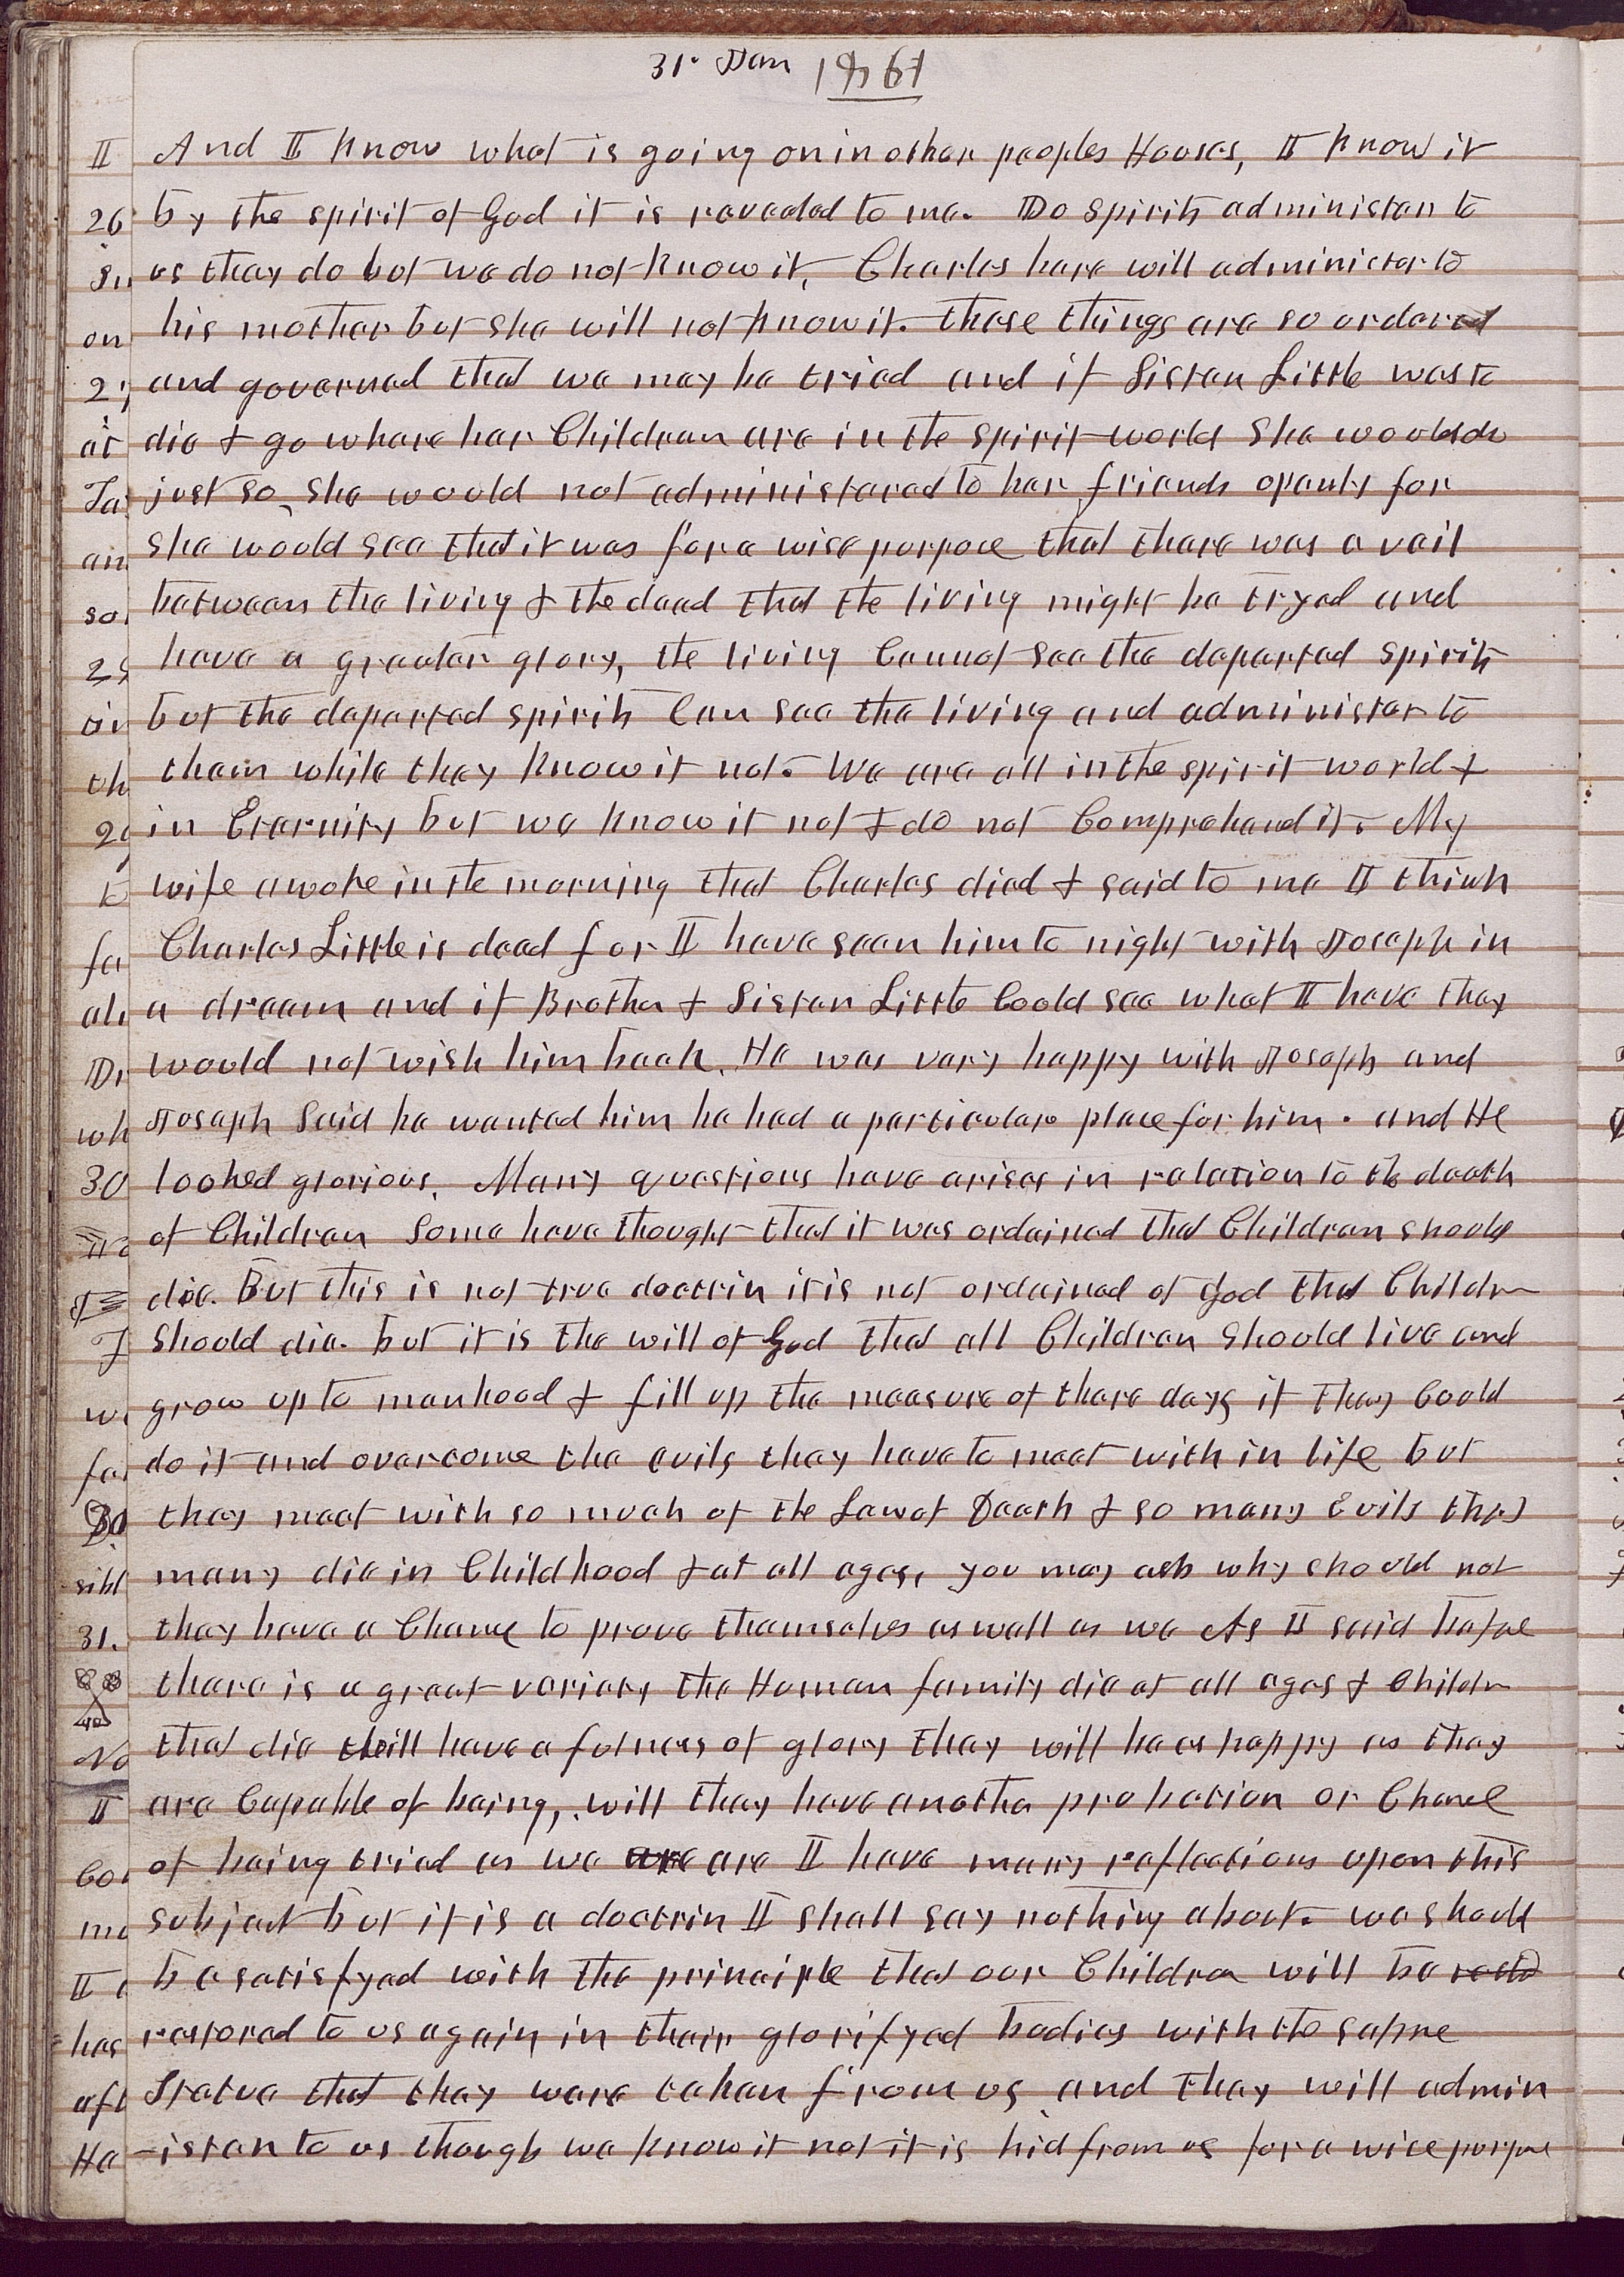 31. Jan 1861
And I know what is going on in other peoples Houses, I know it
by the spirit of God it is revealed to me. Do spirits administer to
us they do but we do not know it, Charles here will administer to
his mother but she will not know it. these things are so ordered
and governed that we may be tried and if Sister Little was to
die & go whare her Children are in the spirit world She would do
just so, she would not administered to her friends openly for
She would see that it was for a wise purpose that there was a vail
between the living & the dead that the living might be tryed and
have a greater glory, the living Cannot see the departed spirits
but the departed spirits Can see the living and administer to
them while they know it not. We are all in the spirit world &
in Eternity but we know it not & do not Comprehend it. My
wife awoke in the morning that Charles died & said to me I think
Charles Little is dead for I have seen him to night with Joseph in
a dream and if Brother & Sister Little Could see what I have they
would not wish him back. He was very happy with Joseph and
Joseph Said he wanted him he had a particular place for him. and He
looked glorious. Many questions have arises in relation to the death
of Children Some have thought that it was ordained that Children should
die. But this is not true doctrin it is not ordained of God that Childrn
Should die. but it is the will of God that all Children Should live and
grow up to manhood & fill up the measure of there days if they Could
do it and overcome the evils they have to meet with in life but
they meet with so much of the Law of Death & so many Evils that
many die in Childhood & at all ages, you may ask why should not
they have a Chance to prove themselves as well as we As I said before
there is a great variety the Human family die at all ages & Childrn
that die will have a fulness of glory they will be as happy as they
are Capable of being, will they have another probation or Chance
of being tried as we are are I have many reflections upon this
subject but it is a doctrin I shall say nothing about. we should
be satisfyed with the principle that our Children will be
restored to us again in their glorifyed bodies with the same
Statue that they were taken from us and they will admin
-ister to us though we know it not it is hid from us for a wise purpose